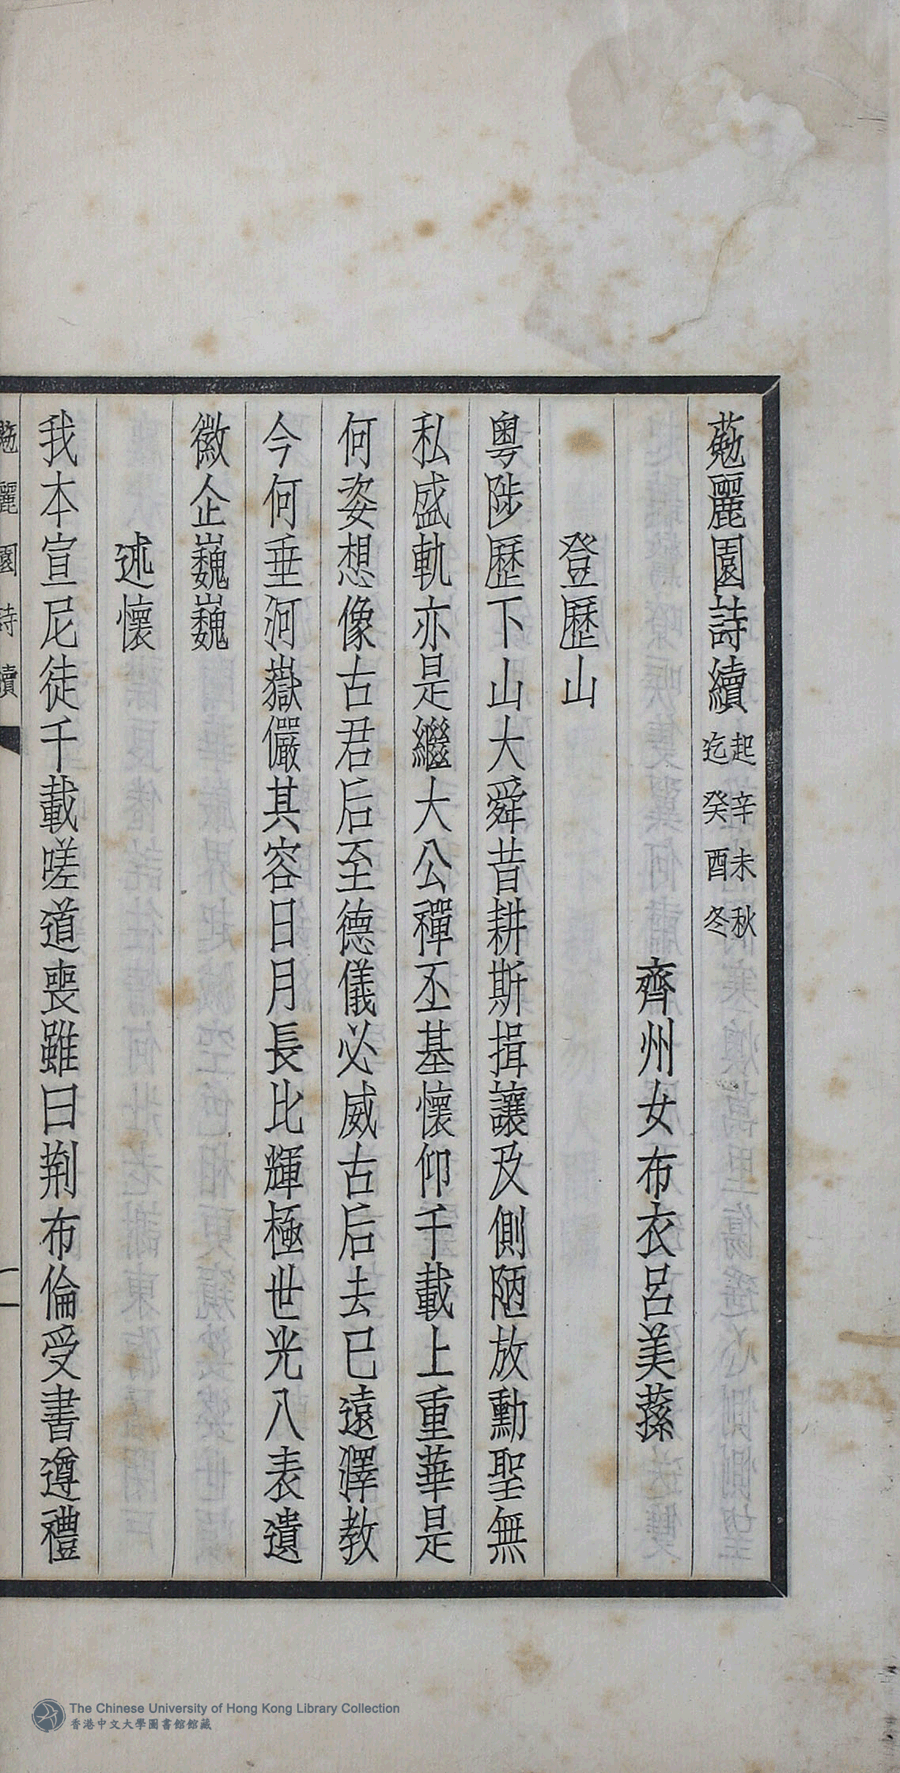 葂麗園詩續 起辛未秋迄癸酉冬
齊州女布衣呂美蓀
登歷山
粵陟歷下山大舜昔耕斯揖讓及側陋放勳聖無
私盛軌亦是繼大公禪丕基懷仰千載上重華是
何姿想像古君后至德儀必威古后去已遠澤教
今何垂河嶽儼其容日月長比輝極世光八表遺
徽企巍巍
述懷
我本宣尼徒千載嗟道喪雖曰荆布倫受書遵禮
麗園詩續
一
The Chinese University of Hong Kong Library Collection
香港中文大學圖書館館藏